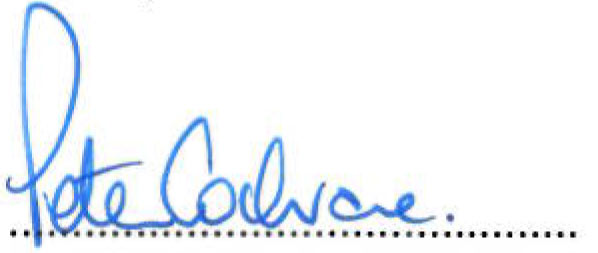 Peter Cochrane.